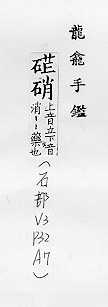 龍龕手鑑
硝
上音立下音
消〻藥也
(石部 V3 P32 A7)